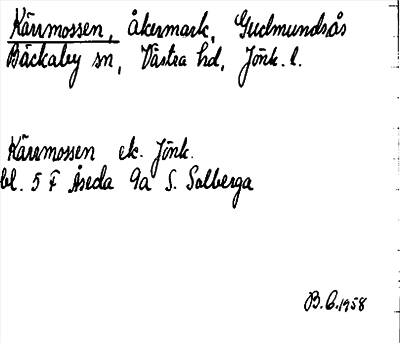 Kärrmossen, åkermark, Gudmundsås
Bäckaby sn, Västra hd, Jönk. l.
Kärrmossen ek. Jönk.
bl. 5 F Åseda 9a S. Solberga
B.C. 1958